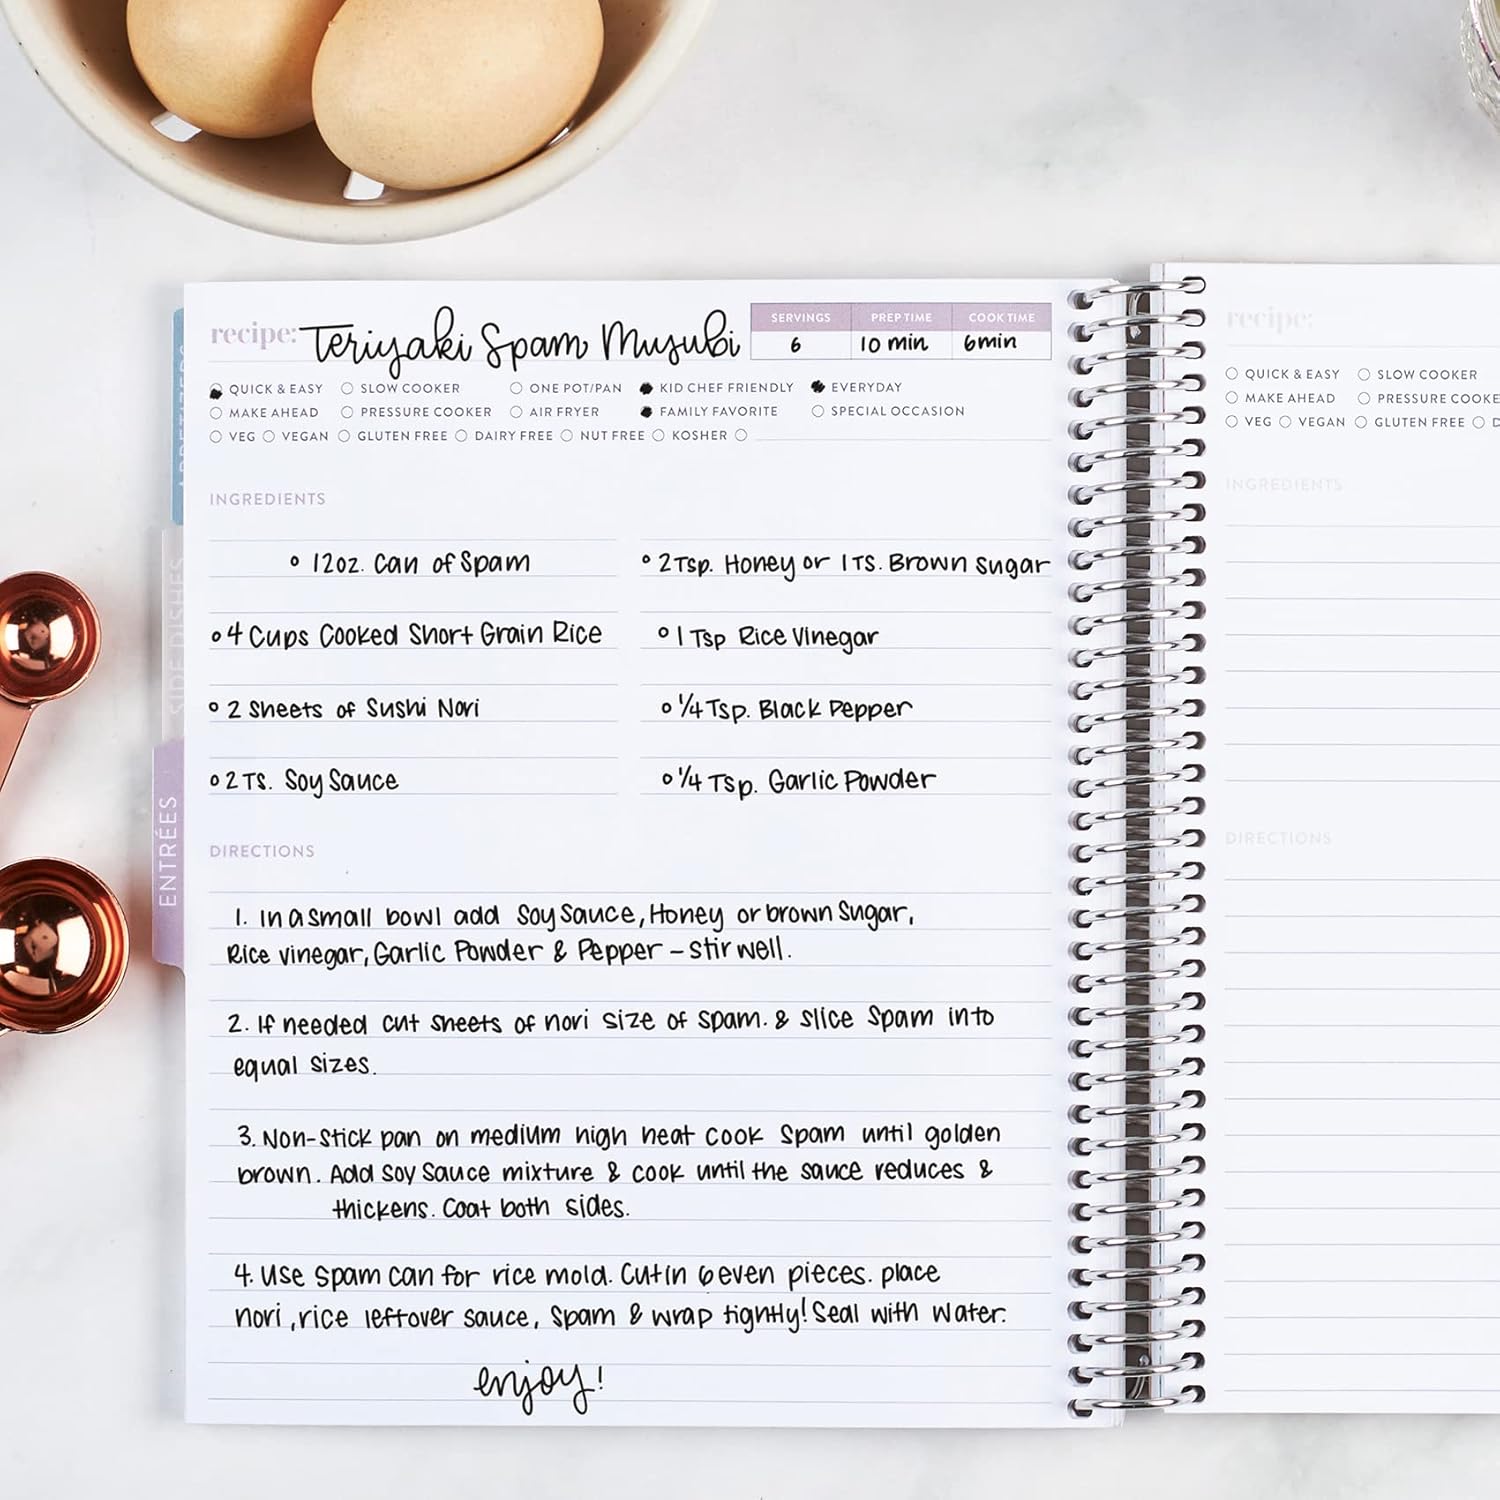 recipe: Teriyaki Spam Musubi
SERVINGS PREP TIME COOK TIME
6 10 min 6min
QUICK & EASY SLOW COOKER ONE POT/PAN KID CHEF FRIENDLY EVERYDAY
MAKE AHEAD PRESSURE COOKER AIR FRYER FAMILY FAVORITE SPECIAL OCCASION
VEG VEGAN GLUTEN FREE DAIRY FREE NUT FREE KOSHER
INGREDIENTS
12oz. Can of Spam
4 Cups Cooked Short Grain Rice
2 Sheets of Sushi Nori
2 TS. Soy Sauce
2 Tsp. Honey or 1 TS. Brown Sugar
1 Tsp Rice Vinegar
1/4 Tsp. Black Pepper
1/4 Tsp. Garlic Powder
DIRECTIONS
1. In a small bowl add Soy Sauce, Honey or brown Sugar,
Rice vinegar, Garlic Powder & Pepper - stir well.
2. If needed cut sheets of nori size of spam. & slice Spam into
equal sizes.
3. Non-stick pan on medium high heat cook Spam until golden
brown. Add soy sauce mixture & cook until the sauce reduces &
thickens. Coat both sides.
4. Use spam can for rice mold. Cut in 6 even pieces. place
nori, rice leftover sauce, Spam & wrap tightly! Seal with water.
enjoy!
APPETIZERS
SIDE DISHES
ENTRÉES
recipe:
QUICK & EASY SLOW COOKER
MAKE AHEAD PRESSURE COOKE
VEG VEGAN GLUTEN FREE D
INGREDIENTS
DIRECTIONS